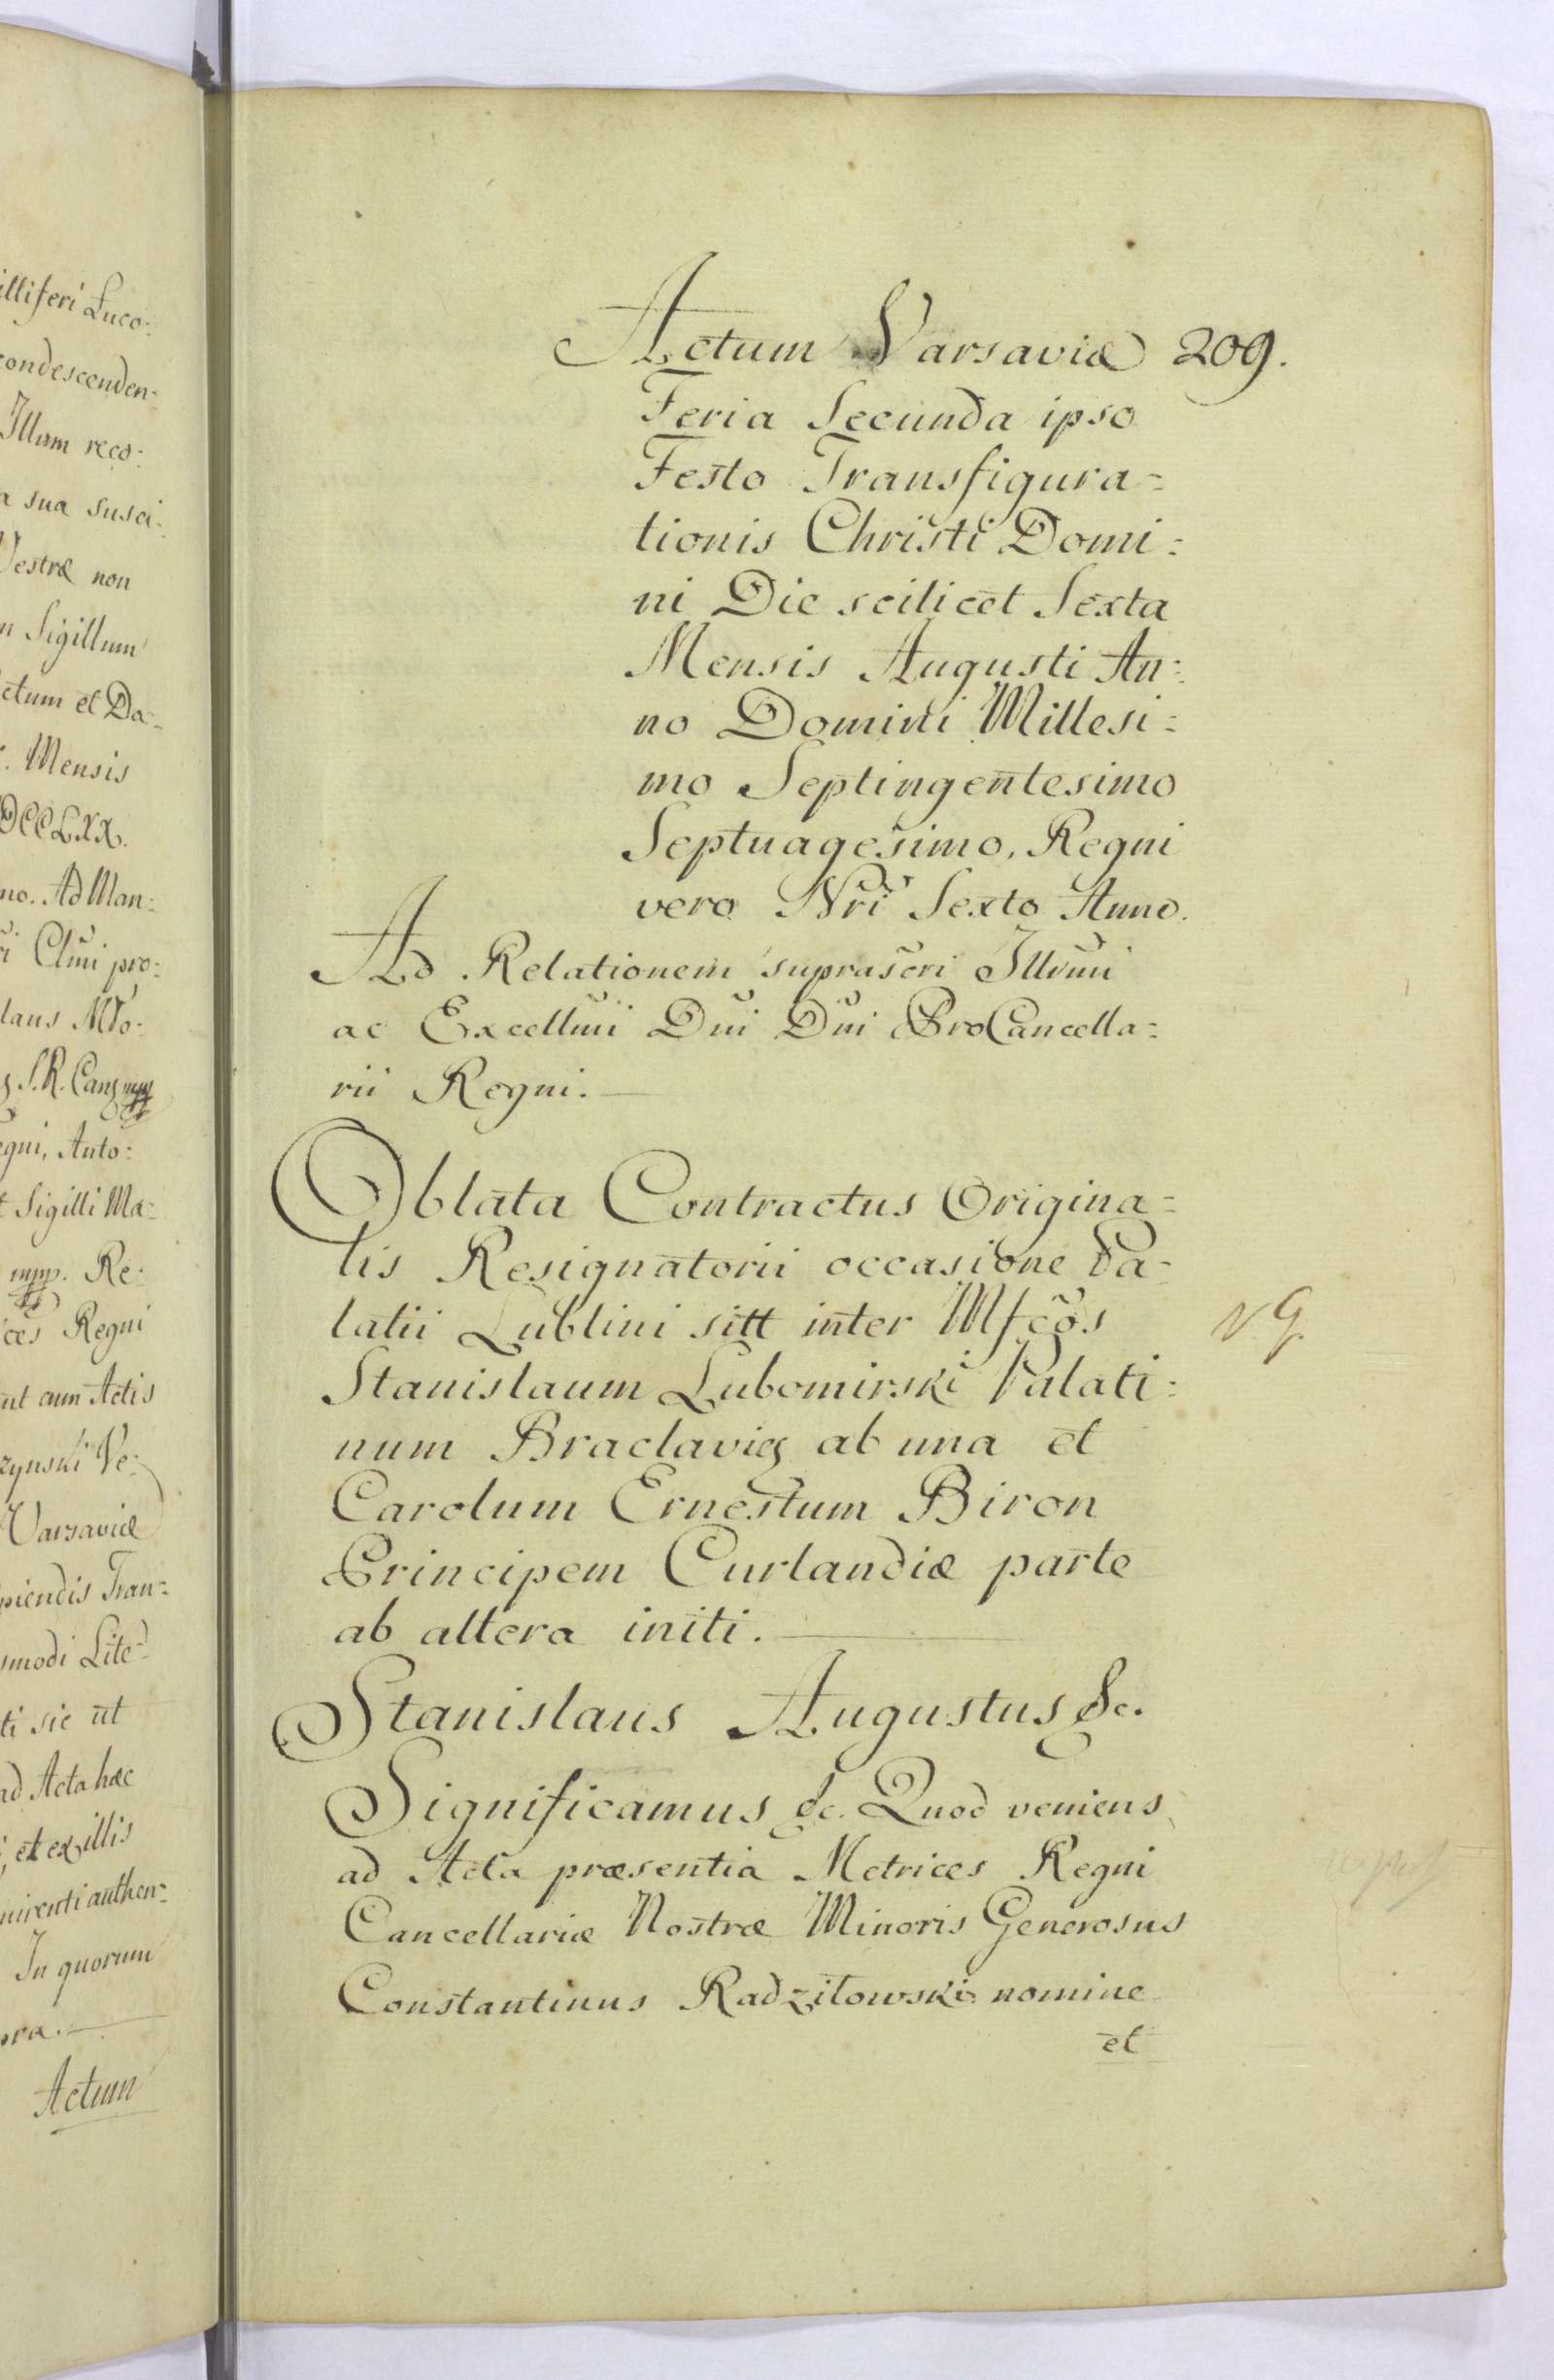 illiferi Luco:
condescenden:
Illum reco:
a sua susci:
Vestræ non
n Sigillum
ctum et Da:
Mensis
DCCLXX.
mo. Ad Man:
Clmi pro:
laus Mło:
S.R. Canc mpp
egni, Anto:
t Sigilli Ma:
mpp. Re:
ces Regni
ut cum Actis
zynski Ve:
Varsaviæ
piendis Tran:
smodi Lite:
ti sic ut
ad Acta hæc
et ex illis
uirenti authen:
In quorum
ora.
Actum
Actum Varsaviæ 209.
Feria Secunda ipso
Festo Transfigura:
tionis Christi Domi:
ni Die scilicet Sexta
Mensis Augusti An:
no Domini Millesi:
mo Septingentesimo
Septuagesimo, Regni
vero Nri Sexto Anno.
Ad Relationem suprascri Illrmi
ac Excellmi Dni Dni ProCancella:
rii Regni.
Oblata Contractus Origina:
lis Resignatorii occasione Pa:
latii Lublini sitt inter Mfcos
Stanislaum Lubomirski Palati:
num Braclaviæ ab una et
Carolum Ernestum Biron
Principem Curlandiæ parte
ab altera initi.
Stanislaus Augustus &c.
Significamus &c. Quod veniens
ad Acta præsentia Metrices Regni
Cancellariæ Nostræ Minoris Generosus
Constantinus Radziłowski nomine
et